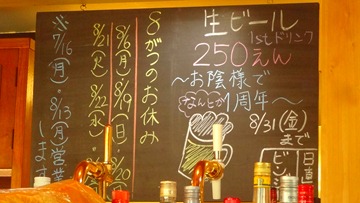 生ビール
1stドリンク
250えん
〜お陰様で
なんとか1周年〜
8/31(金)
まで
8がつのお休み
8/6(月)・8/19(日)・8/20
8/21(火)・8/22(水)
※7/16(月)・8/13(月)営業
します